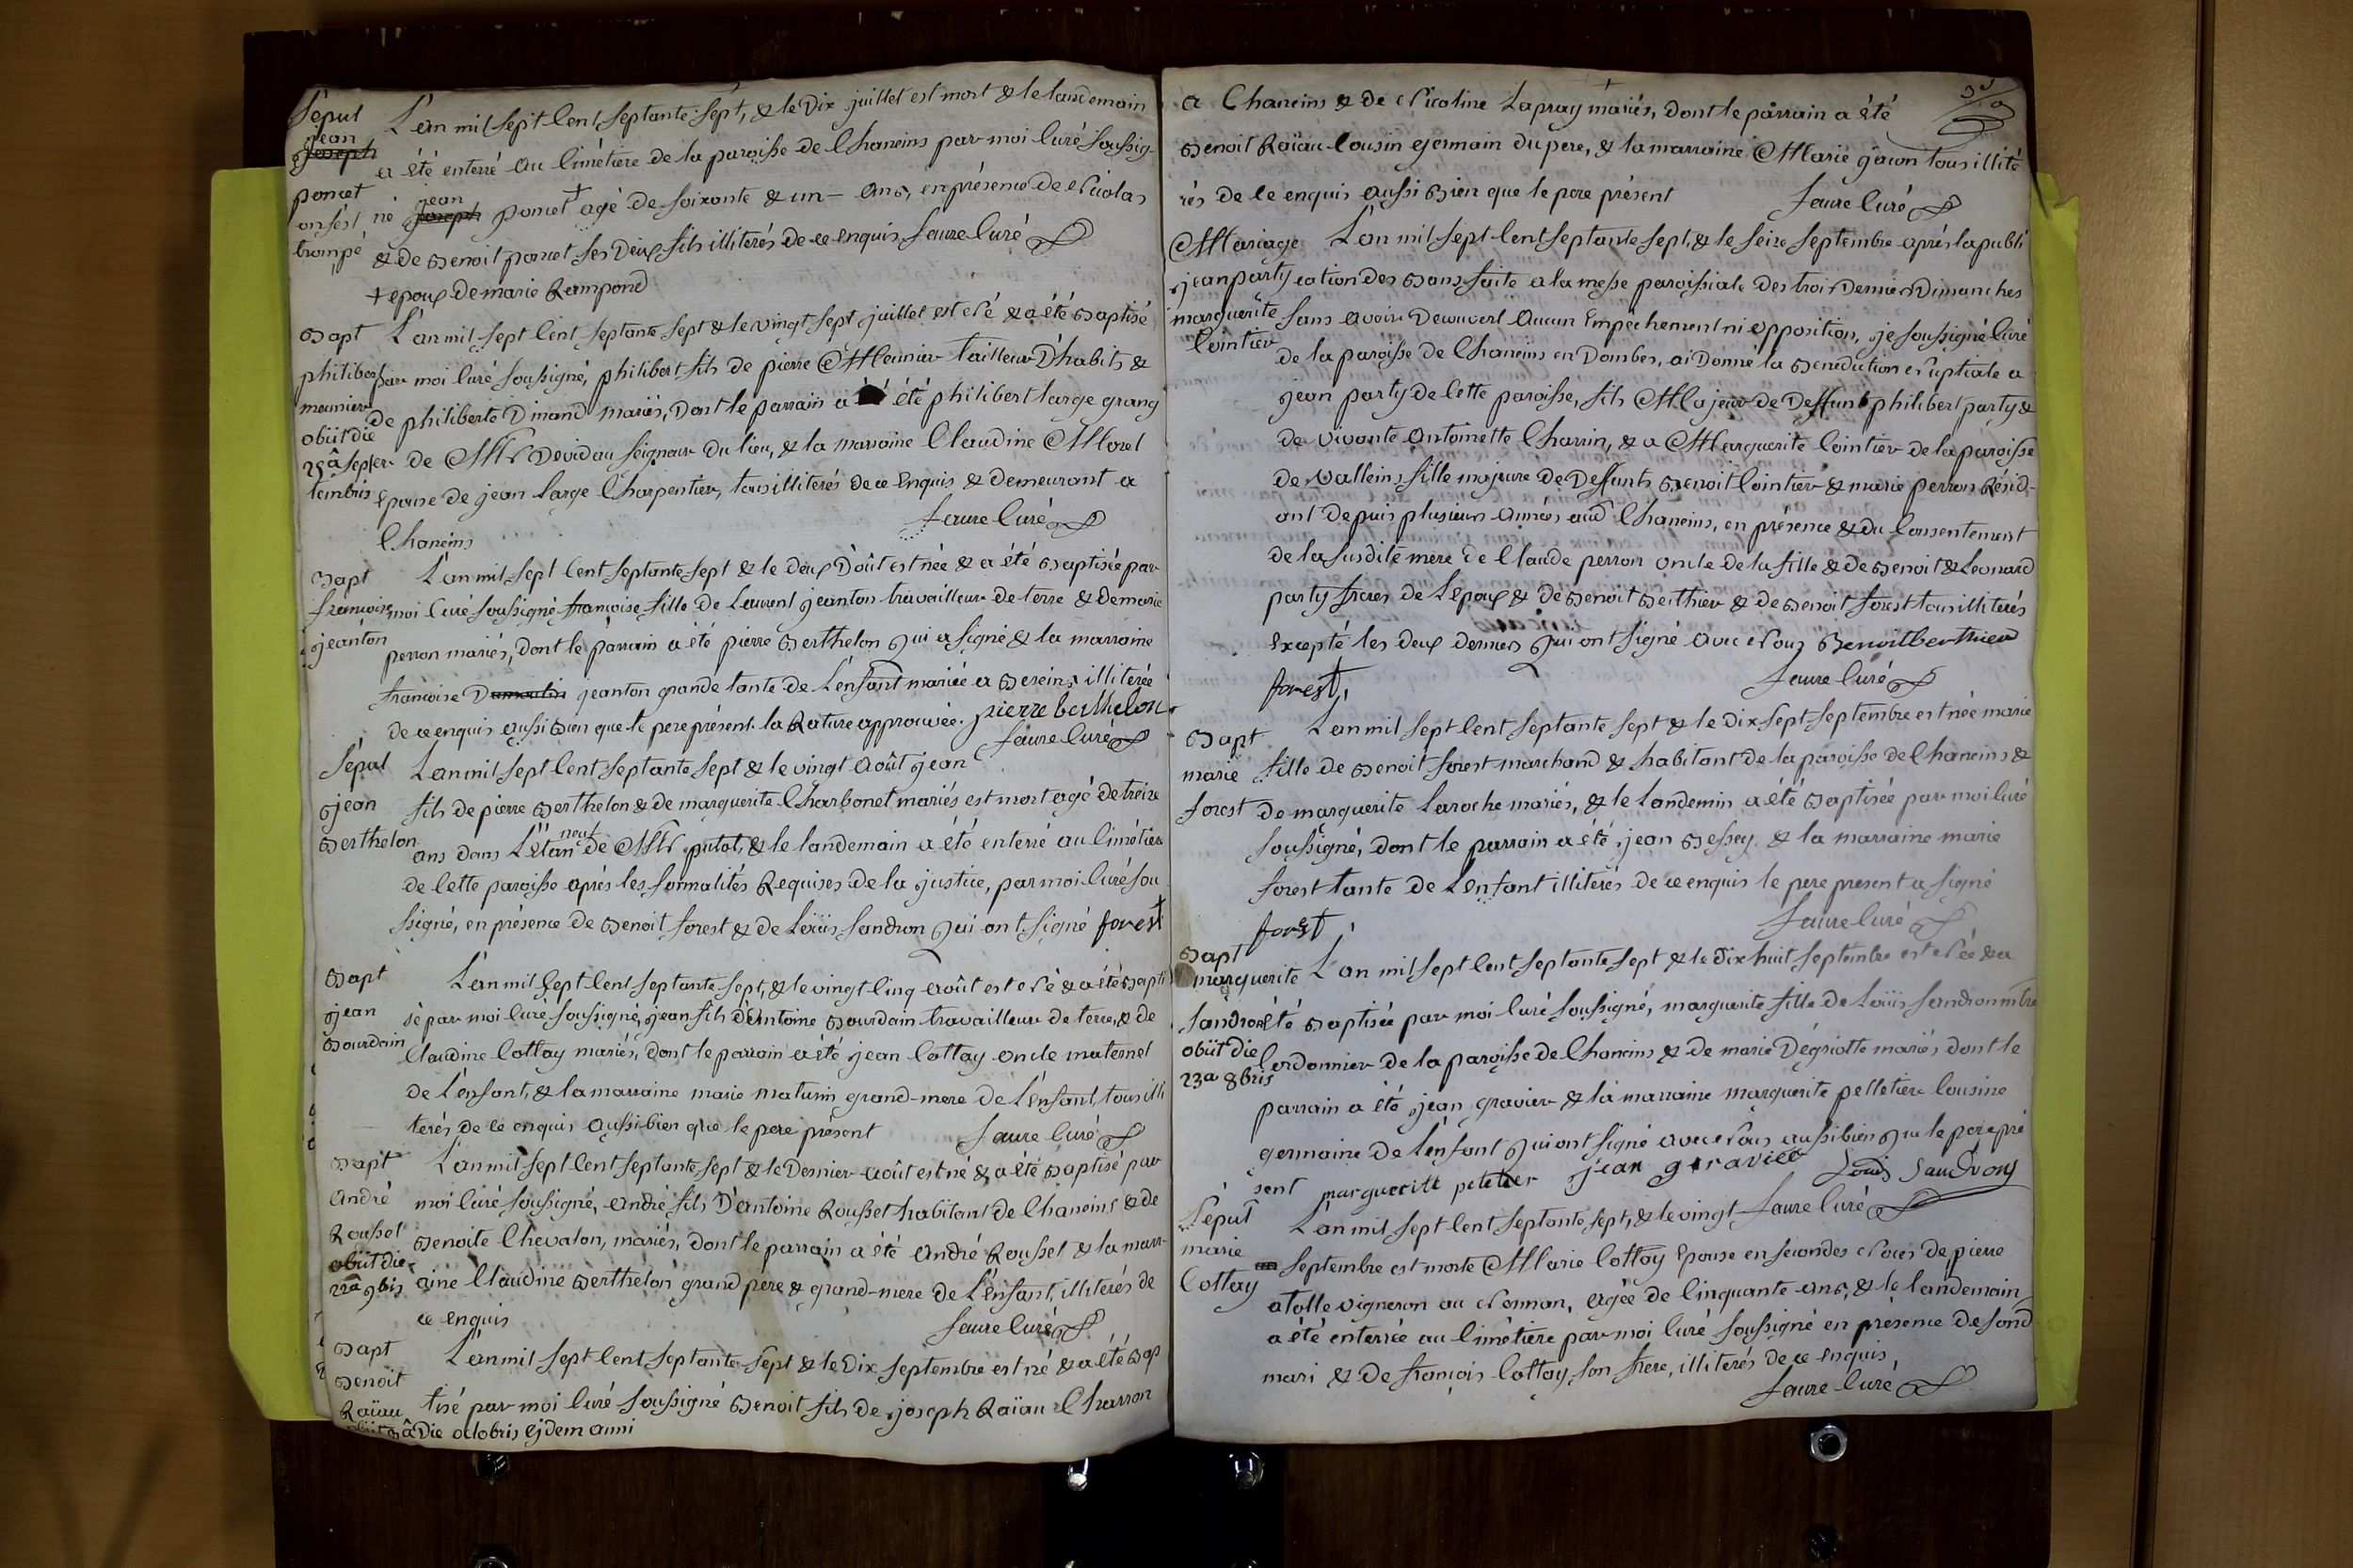 Sepul
jean
joseph
poncet
on sest
trompé
L'an mil sept Cent septante sept, & le Dix juillet est mort & le landemain
a été enterré au Cimétiere de la paroisse de Chaneins par moi Curé soussig-
né jean joseph poncet + agé de soixante & un - ans, en présence de Nicolas
& de Benoit poncet ses Deux fils illiterés de ce Enquis faure Curé
+ epoux de marie Rampond
Bapt
philibert
meunier
obiit die
25â septem
tembris
L'an mil sept Cent septante sept & le vingt sept juillet est Né & a été Baptisé
par moi Curé soussigné, philibert fils de pierre Meunier tailleur D'habits &
de philiberte Dinand mariés, Dont le parrain a été philibert large grang
er de Mr Devidau seigneur du lieu, & la marraine Claudine Morel
Epouse de jean large Charpentier, tous illiterés de ce Enquis & demeurant a
Chaneins faure Curé
Bapt
francoise
jeanton
L'an mil sept Cent septante sept & le deux D'oût est née & a été Baptisée par
moi Curé soussigné francoise fille de Laurent jeanton travailleur de terre & de marie
perron mariés, dont le parrain a été pierre Berthelon Qui a signé & la marraine
francoise Dumoulin jeanton grande tante de L'enfant mariée a Bereins illiterée
de ce enquis aussi Bien que le pere présent. la Rature approuvée. pierre berthelon
faure Curé
Sepul
jean
Berthelon
L'an mil sept Cent septante sept & le vingt Août jean
fils de pierre Berthelon & de marguerite Charbonet mariés est mort agé de treize
ans dans L'êtan neuf de Mr putot, & le landemain a été enterré au Cimétiere
de Cette paroisse aprés les formalités Requises de la justice, par moi Curé sou
ssigné, en présence de Benoit forest & de Loüis sandron Qui ont signé forest
Bapt
jean
Bourdain
L'an mil sept Cent septante sept, & le vingt Cinq Août est Né & a été Bapti
sé par moi Curé soussigné, jean fils d'Antoine Bourdain travailleur de terre, & de
Claudine Cottay mariés, dont le parrain a été jean Cottay oncle maternel
de L'enfant, & la marraine marie maturin grand-mere de L'enfant, tous illi
terés de ce enquis Aussi bien que le pere présent faure Curé
Bapt
André
Rousset
obiit die
22â 9bis
L'an mil sept Cent septante sept & le Dernier août est né & a été Baptisé par
moi Curé soussigné, André fils D'antoine Rousset habitant de Chaneins & de
Benoite Chevalon, mariés, dont le parrain a été André Rousset & la marr-
aine Claudine Berthelon grand pere & grand-mere de L'enfant, illiterés de
ce enquis faure Curé
Bapt
Benoit
Raïau
L'an mil sept Cent septante sept & le Dix septembre est né & a été Bap
tisé par moi Curé soussigné Benoit fils de joseph Raïau Charron
â Die octobris ejdem anni
a Chaneins & de Nicoline Lapray mariés, dont le parrain a été
Benoit Raïau Cousin germain du pere, & la marraine Marie jacon tous illité
rés de ce enquis aussi Bien que le pere présent faure Curé
Mariage
jean party
marguerite
Cointier
L'an mil sept Cent septante sept, & le seize septembre aprés la publi
cation des Bans faite a la messe paroissiale des trois Derniers Dimanches
sans avoir Decouvert Aucun Empêchement ni opposition, je soussigné Curé
de la paroisse de Chaneins en Dombes, ai Donné la Benediction Nuptiale a
jean party de Cette paroisse, fils Majeur de Deffunt philibert party &
de vivante Antoinette Charrin, & a Marguerite Cointier de la paroisse
de valleins fille majeure de Deffunts Benoit Cointier & marie perron Resid-
ant depuis plusieurs années aud Chaneins, en présence & du Consentement
de la susdite mere de Claude perron oncle de la fille & de Benoit & Leonard
party freres de L'epoux & de Benoit Berthier & de Benoit forest tous illiterés
Excepté les deux derniers Qui ont signé avec Nous Benoit berthier
forest, faure Curé
Bapt
marie
forest
L'an mil sept Cent septante sept & le dix sept septembre est née marie
fille de Benoit forest marchand & habitant de la paroisse de Chaneins &
de marguerite Laroche mariés, & le Landemin a été Baptisée par moi Curé
soussigné, dont le parrain a été jean Bessey & la marraine marie
forest tante de L'enfant illiterés de ce enquis le pere present a signé
forest faure Curé
Bapt
marguerite
sandron
obiit die
23a 8bris
L'an mil sept Cent septante sept & le Dix huit septembre est Née & a
été Baptisée par moi Curé soussigné, marguerite fille de Loüis sandron mtre
Cordonnier de la paroisse de Chaneins & de marie Dégriotte mariés dont le
parrain a été jean gravier & la marraine marguerite pelletier Cousine
germaine de L'enfant Qui ont signé avec Nous aussi bien Que le pere pré
sent margueritt peletier jean gravier Louis Sandrons
faure Curé
Sepul
marie
Cottay
L'an mil sept Cent septante sept, & le vingt
septembre est morte Marie Cottay Epouse en secondes Noces de pierre
atolle vigneron au Nonnan, agée de Cinquante ans, & le landemain
a été enterrée au Cimêtiere par moi Curé soussigné en présence de sond
mari & de françois Cottay son frere, illiterés de ce enquis
faure Curé